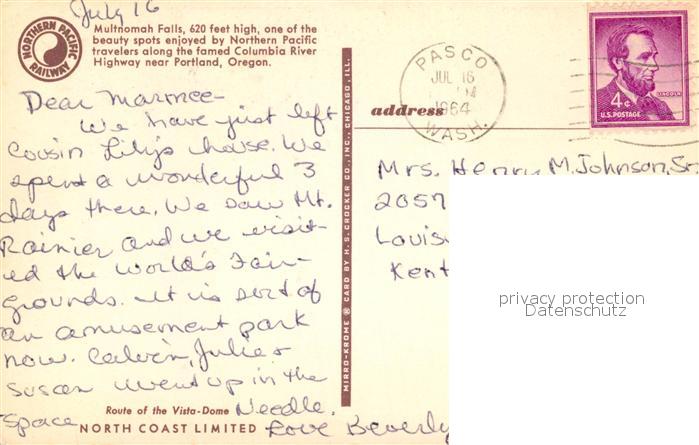 July 16
NORTHERN PACIFIC
RAILWAY
Multnomah Falls, 620 feet high, one of the
beauty spots enjoyed by Northern Pacific
travelers along the famed Columbia River
Highway near Portland, Oregon.
Dear Marmee-
We have just left
Cousin Lily's house. We
spent a wonderful 3
days there. We saw Mt.
Rainier and we visit-
ed the World's Fair-
grounds. It is sort of
an amusement park
now. Calvin, Julie &
Susan went up in the
Space Needle.
Love Beverly
Route of the Vista-Dome
NORTH COAST LIMITED
MIRRO-KROME ® CARD BY H. S. CROCKER CO., INC., CHICAGO, ILL.
PASCO
JUL 16
PM
1964
WASH.
LINCOLN
4¢
U.S. POSTAGE
address
Mrs. Henry M. Johnson, Sr.
2057
Louis
Kent
privacy protection
Datenschutz